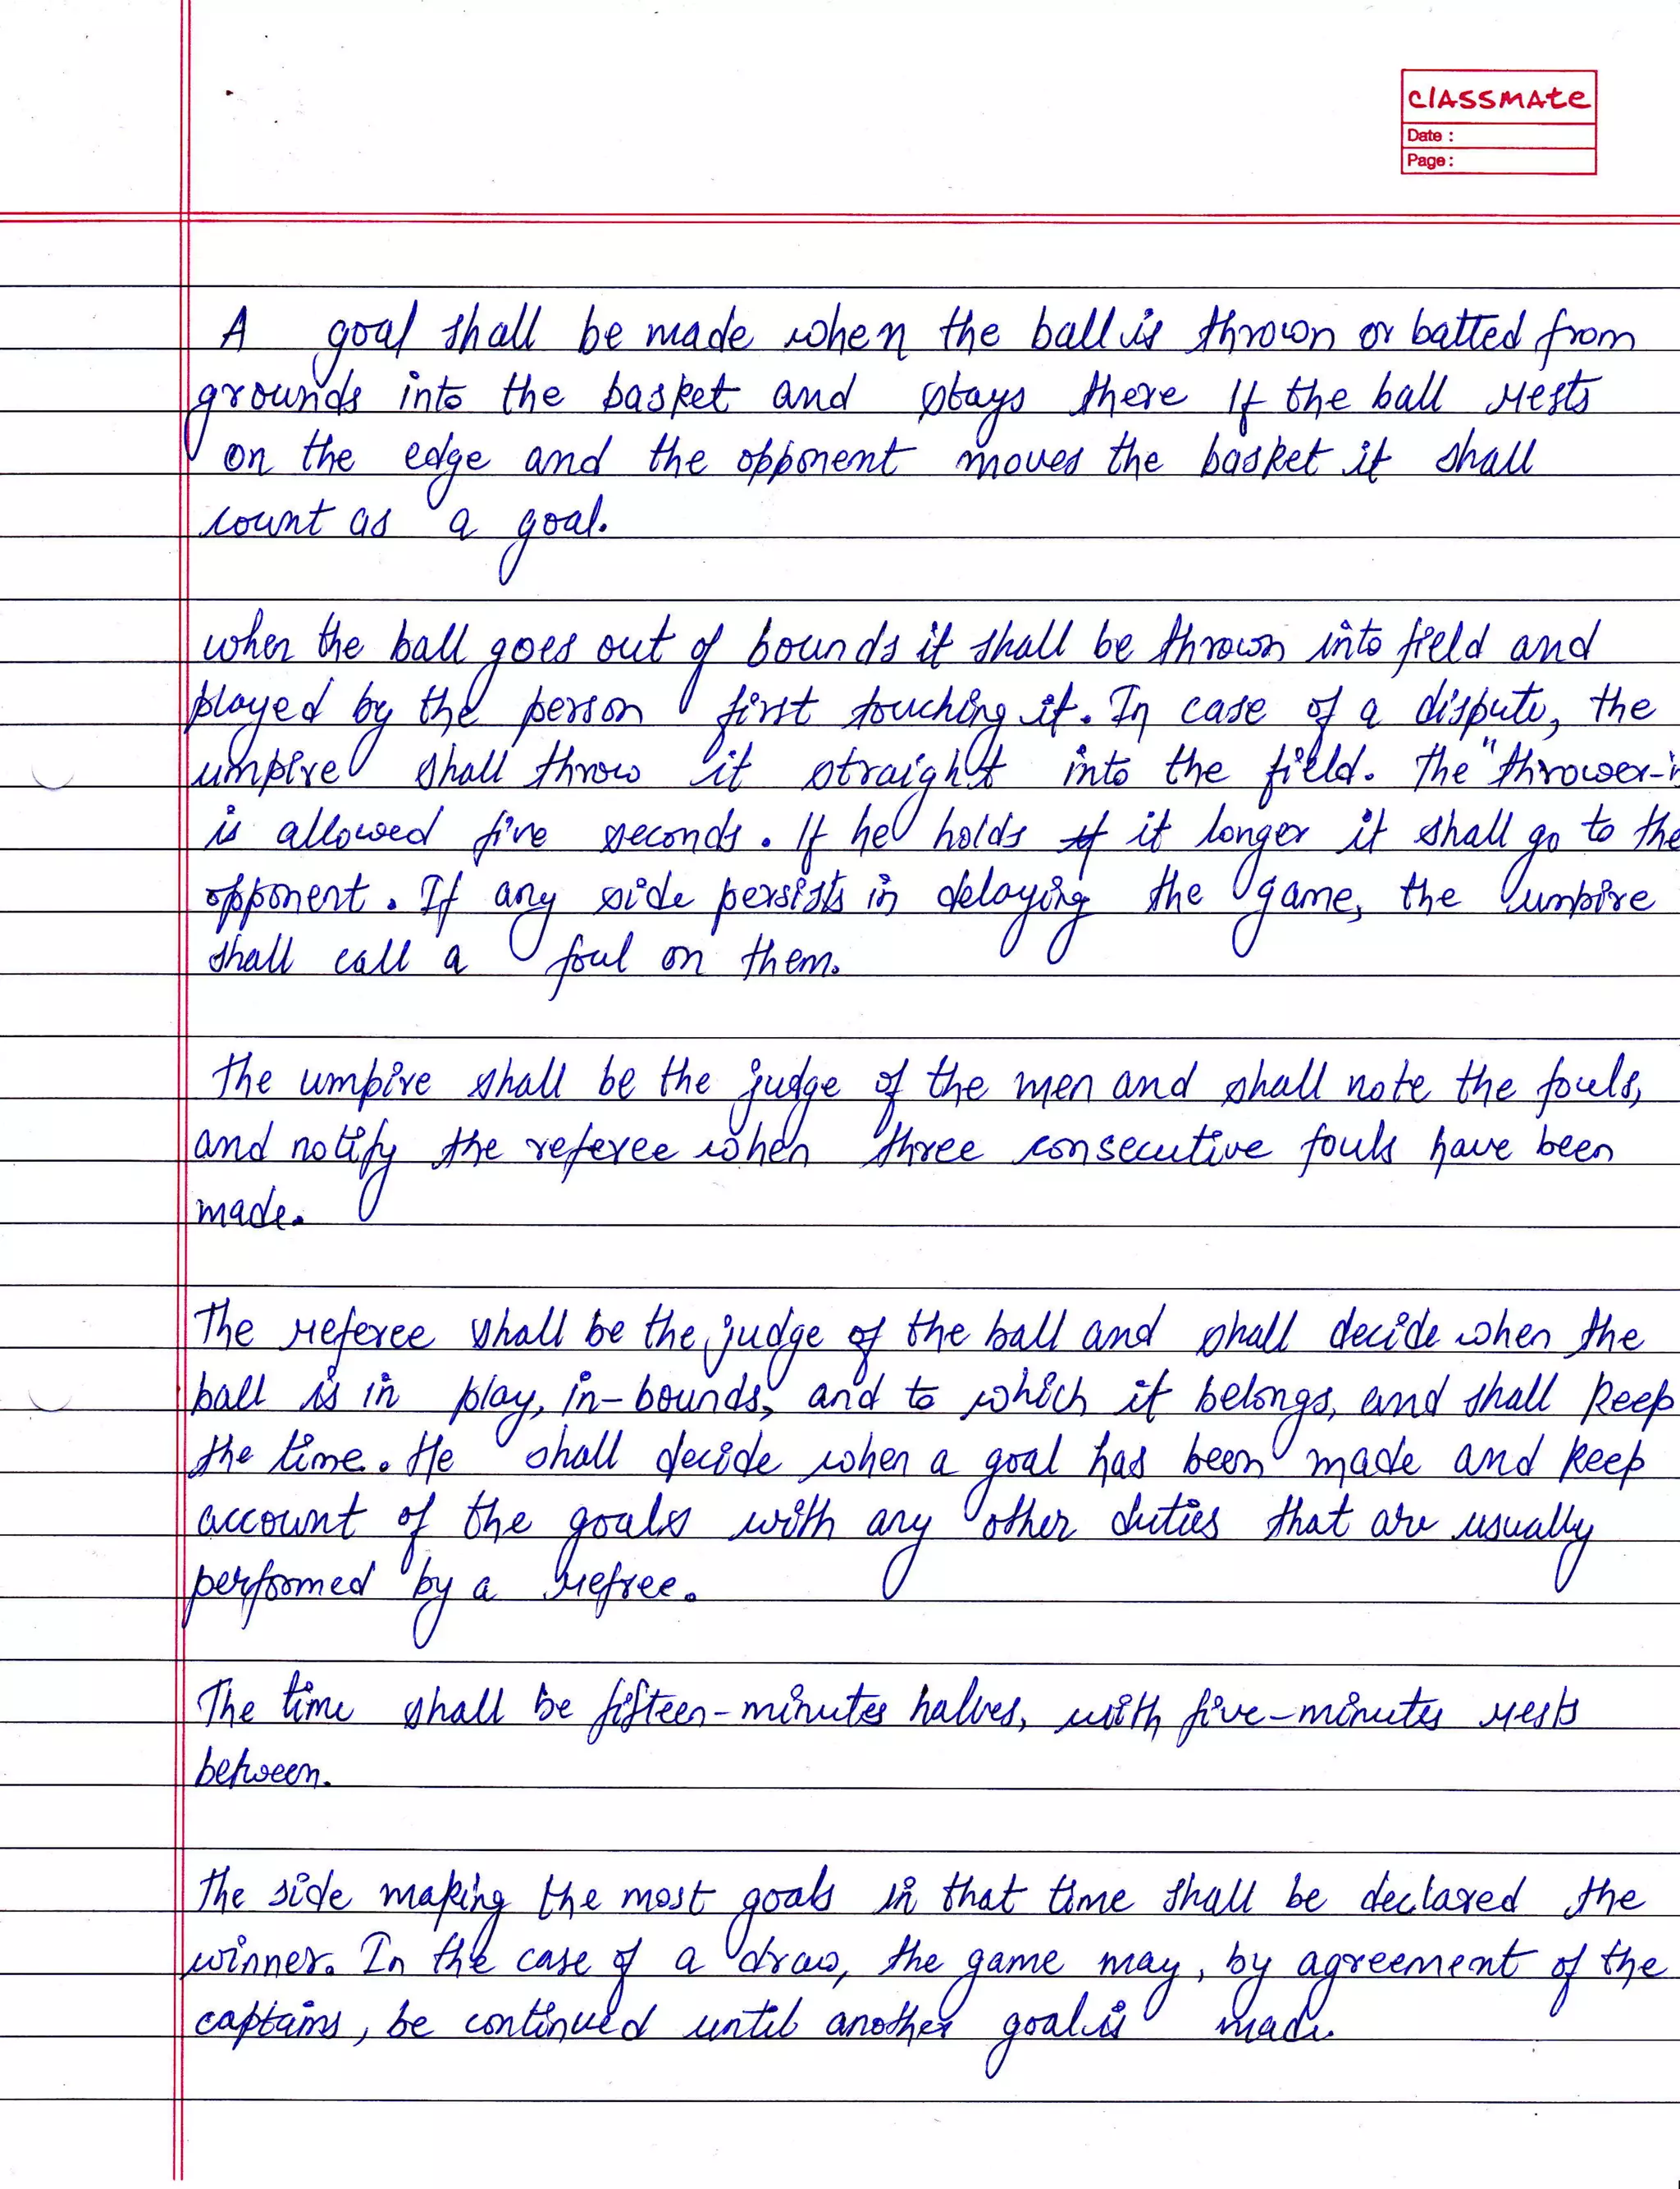 classmate
Date :
Page :
A goal shall be made when the ball is thrown or batted from
grounds into the basket and stays there If the ball rests
on the edge and the opponent moves the basket it shall
count as a goal.
when the ball goes out of bounds it shall be thrown into field and
played by the person first touching it. In case of a dispute, the
umpire shall throw it straight into the field. The "thrower-i
is allowed five seconds. If he holds it longer it shall go to the
opponent. If any side persists in delaying the game, the umpire
shall call a foul on them.
The umpire shall be the judge of the men and shall note the fouls,
and notify the referee when three consecutive fouls have been
made.
The referee shall be the judge of the ball and shall decide when the
ball is in play, in-bounds, and to which it belongs, and shall keep
the time. He shall decide when a goal has been made and keep
account of the goals with any other duties that are usually
performed by a refree.
The time shall be fifteen-minutes halves, with five-minutes rests
between.
The side making the most goals in that time shall be declared the
winner. In the case of a draw, the game may, by agreement of the
captains, be continued until another goal is made.